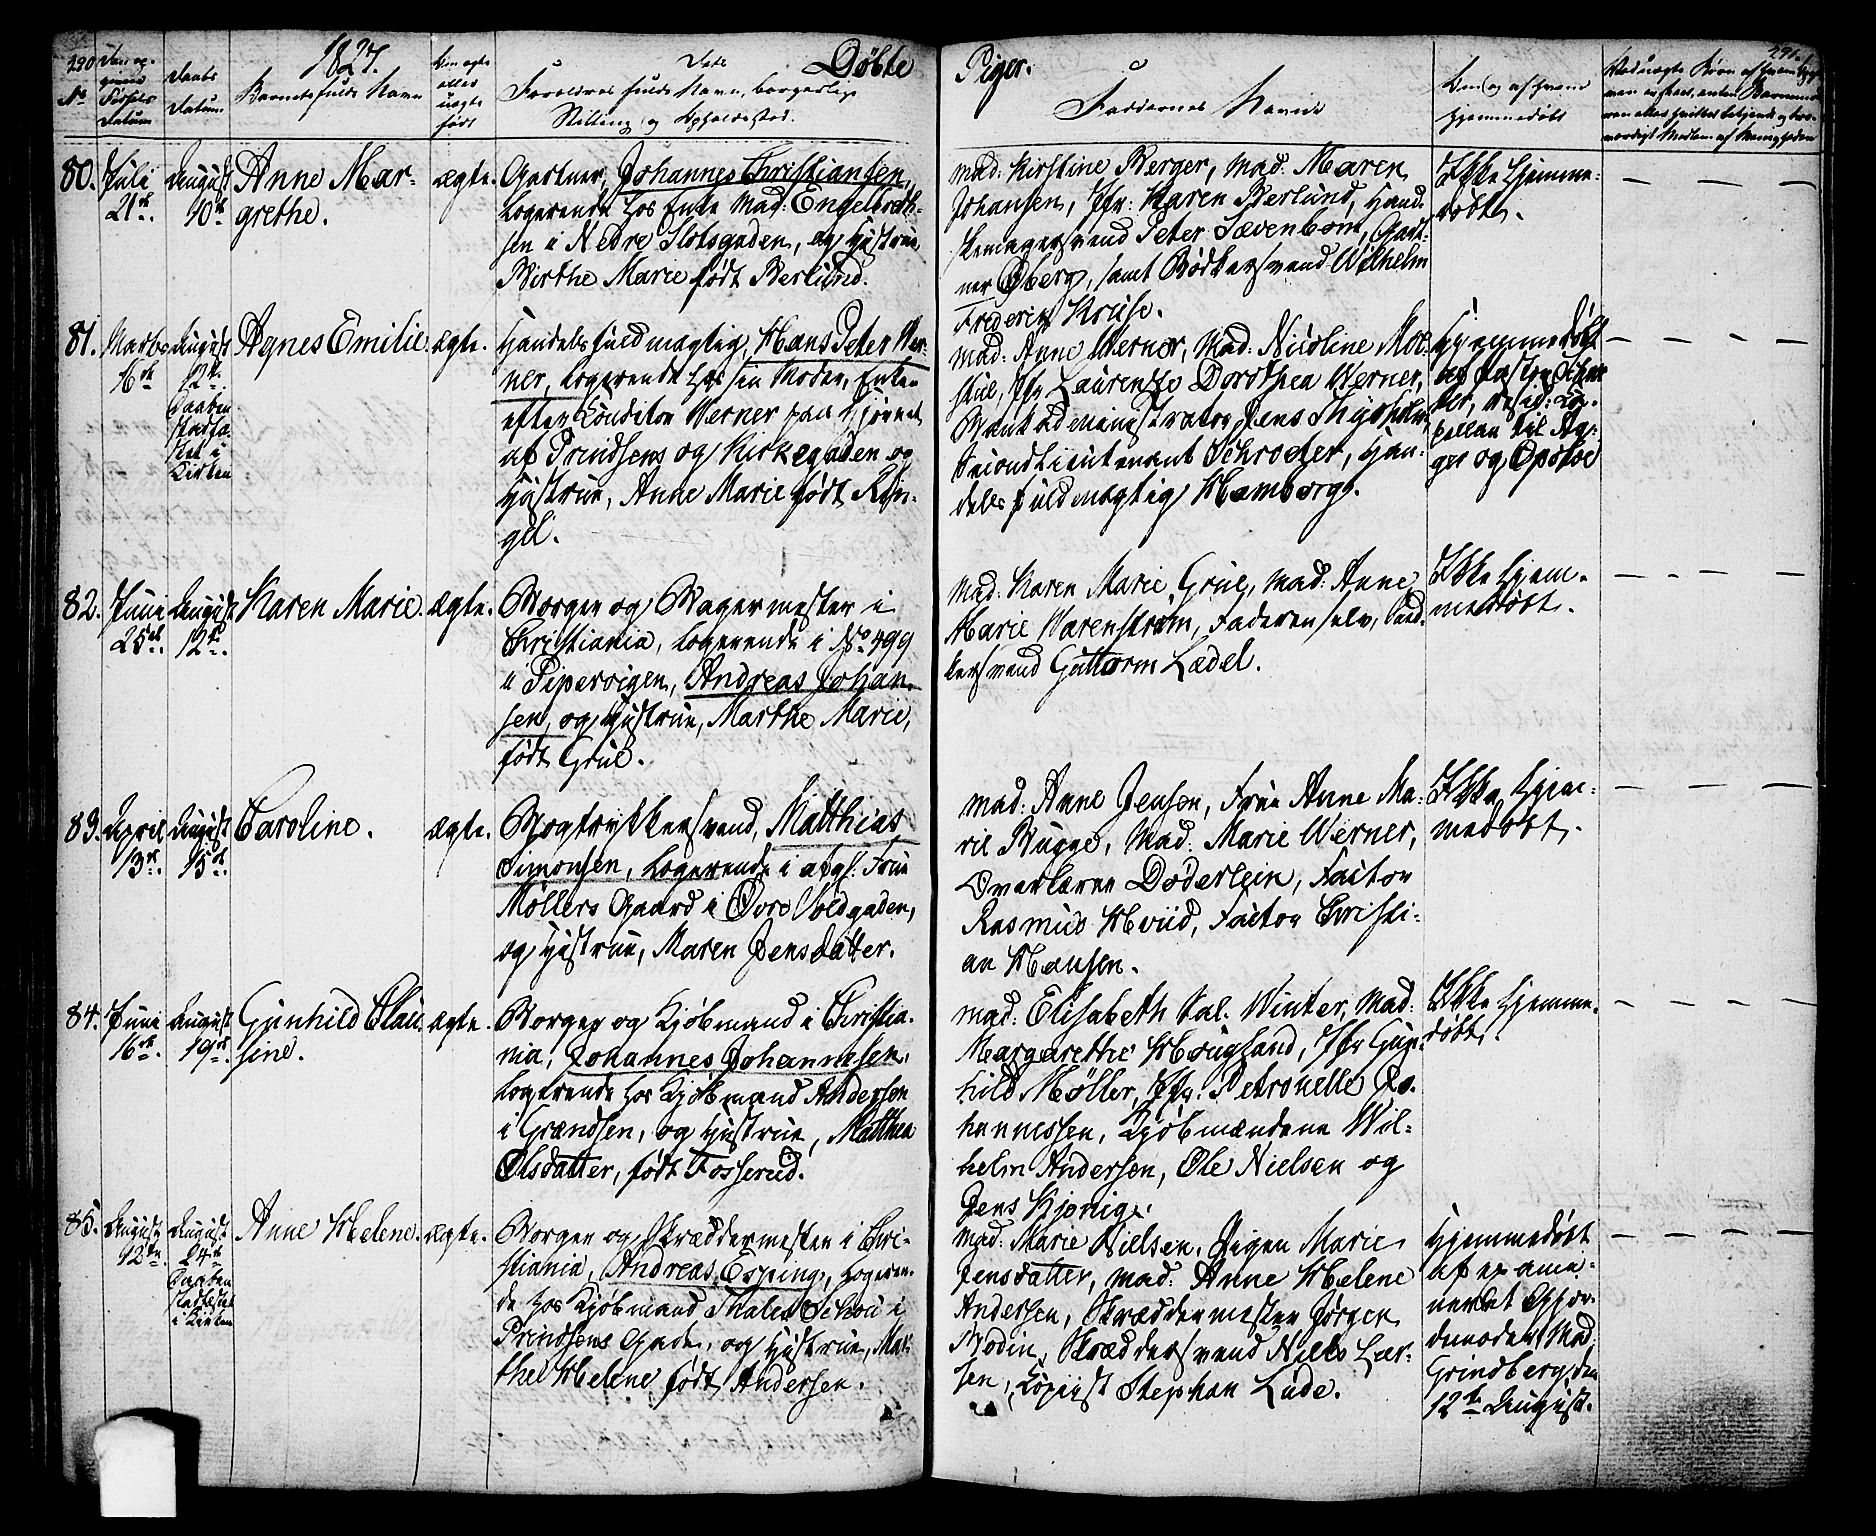 290
1827.
Døbte
Piger.
291.
No
Den op-
givne
Fødsels
Datum
Daabs
Datum
Barnets fulde Navn
Om ægte
eller
uægte
født
Forældres fulde Navn, borgerlige
Stilling og Opholdssted.
Faddernes Navne
hjemmedøbt
80.
Juli
21de.
August
10de
Anne Mar-
grethe.
ægte.
Gartner, Johannes Christiansen,
logerende hos Enke Mad: Engelbreth-
sen i Nedre Slotsgaden, og Hustrue,
Birthe Marie født Berlund.
Mad: Kirstine Berger, Mad: Maren
Johansen, Jfr: Karen Berlund, Hand-
skemagersvend Peter Sevenbom, Gart-
ner Øberg, samt Bødkersvend Wilhelm
Frederik Kruse.
Ikke hjemme-
døbt.
— — —
81.
Marts
6te
August
12te.
Daaben
stadfæ-
stet i
Kirken
Agnes Emilie.
ægte.
Handelsfuldmægtig, Hans Peter Wer-
ner, logerende hos sin Moder, Enken
efter Conditor Werner paa Hjørnet
af Prindsens og Kirkegaden og
Hustrue, Anne Marie født Rin-
gli.
Mad: Anne Werner, Mad: Nicoline Moe-
stue, Jfr Laurentze Dorothea Werner,
Bankadministrator Jens Thygholm,
Secondlieutenant Schroeter, Han-
dels fuldmægtig Hamborg.
Hjemmedøbt
af Pastor
resid: Ca-
pellan til Ag-
ger og Opsloe
— — —
82.
Juni
25de.
August
12te.
Karen Marie.
ægte.
Borger og Bagermester i
Christiania, logerende i No 499
i Pipervigen, Andreas Johan-
sen, og Hustrue, Marthe Marie,
født Grue.
Mad: Karen Marie Grue, Mad: Anne
Marie Warenstrøm, Faderen selv,
kersvend Guttorm Lædel.
Ikke hjem-
medøbt.
— — —
83.
April
13de.
August
15de.
Caroline.
ægte.
Bogtrykkersvend, Matthias
Simonsen, logerende i afg: Frue
Møllers Gaard i Øvre Voldgaden,
og Hustrue, Maren Jensdatter.
Mad: Anne Jensen, Frue Anne Ma-
rie Bugge, Mad: Marie Werner,
Overlærer Døderlein, Factor
Rasmus Hviid, Factor Christi-
an Hansen.
Ikke hjem-
medøbt.
— — —
84.
Juni
16de.
August
19de.
Gunhild Clau-
sine.
ægte.
Borger og Kjøbmand i Christia-
nia, Johannes Johannesen,
logerende hos Kjøbmand Andersen
i Grændsen, og Hustrue, Matthea
Olsdatter, født Fosserud.
Mad: Elisabeth Sal. Winter, Mad:
Margarethe Hougland, Jfr Gun-
hild Møller, Jfr. Petronelle Jo-
hannessen, Kjøbmændene Wil-
helm Andersen, Ole Nielsen og
Jens Kjønig.
Ikke hjemme-
døbt.
— — —
85.
August
12te.
August
24de
Daaben
stadfæstet
i Kirken
Anne Helene.
ægte.
Borger og Skræddermester i Chri-
stiania, Andreas Esping, logeren-
de hos Kjøbmand Thales Schou i
Prindsens Gade, og Hustrue, Mar-
the Helene født Andersen.
Mad: Marie Nielsen, Pigen Marie
Jensdatter, Mad: Anne Helene
Andersen, Skræddermester Jørgen
Modin, Skræddersvend Niels Lar-
sen, Copiist Stephan Lude.
Hjemmedøbt
af exami-
neret Gjor-
demoder Mad:
Grindberg, den
12te August.
— — —